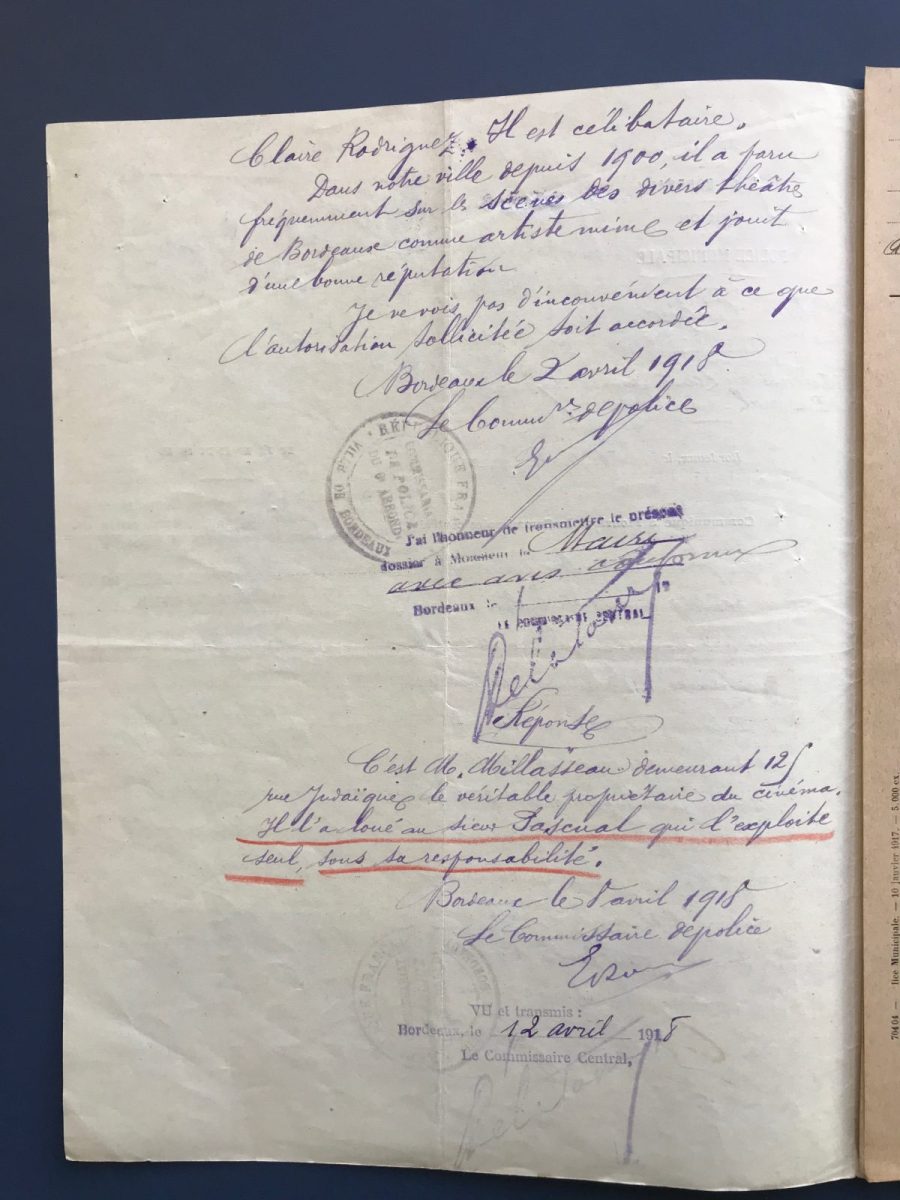 Claire Rodriguez. Il est célibataire.
Dans notre ville depuis 1900, il a paru
fréquemment sur les scènes des divers théâtres
de Bordeaux comme artiste mime et jouit
d'une bonne réputation
Je ne vois pas d'inconvénient à ce que
l'autorisation sollicitée soit accordée.
Bordeaux le 2 avril 1918
Le Commre de police
RÉPUBLIQUE FRA
VILLE DE BORDEAUX
COMMISSARIAT
DE POLICE
DU 6e ARROND.
J'ai l'honneur de transmettre le présent
dossier à Monsieur le Maire
avec avis conforme
Bordeaux le 19
LE COMMISSAIRE CENTRAL
Réponse
C'est M. Millasseau demeurant 125
rue Judaïque le véritable propriétaire du cinéma.
Il l'a loué au sieur Pascual qui l'exploite
seul, sous sa responsabilité.
Bordeaux le 8 avril 1918
Le Commissaire de police
VU et transmis :
Bordeaux, le 12 avril 1918
Le Commissaire Central,
70404 — lice Municipale. — 10 janvier 1917. — 5.000 ex.